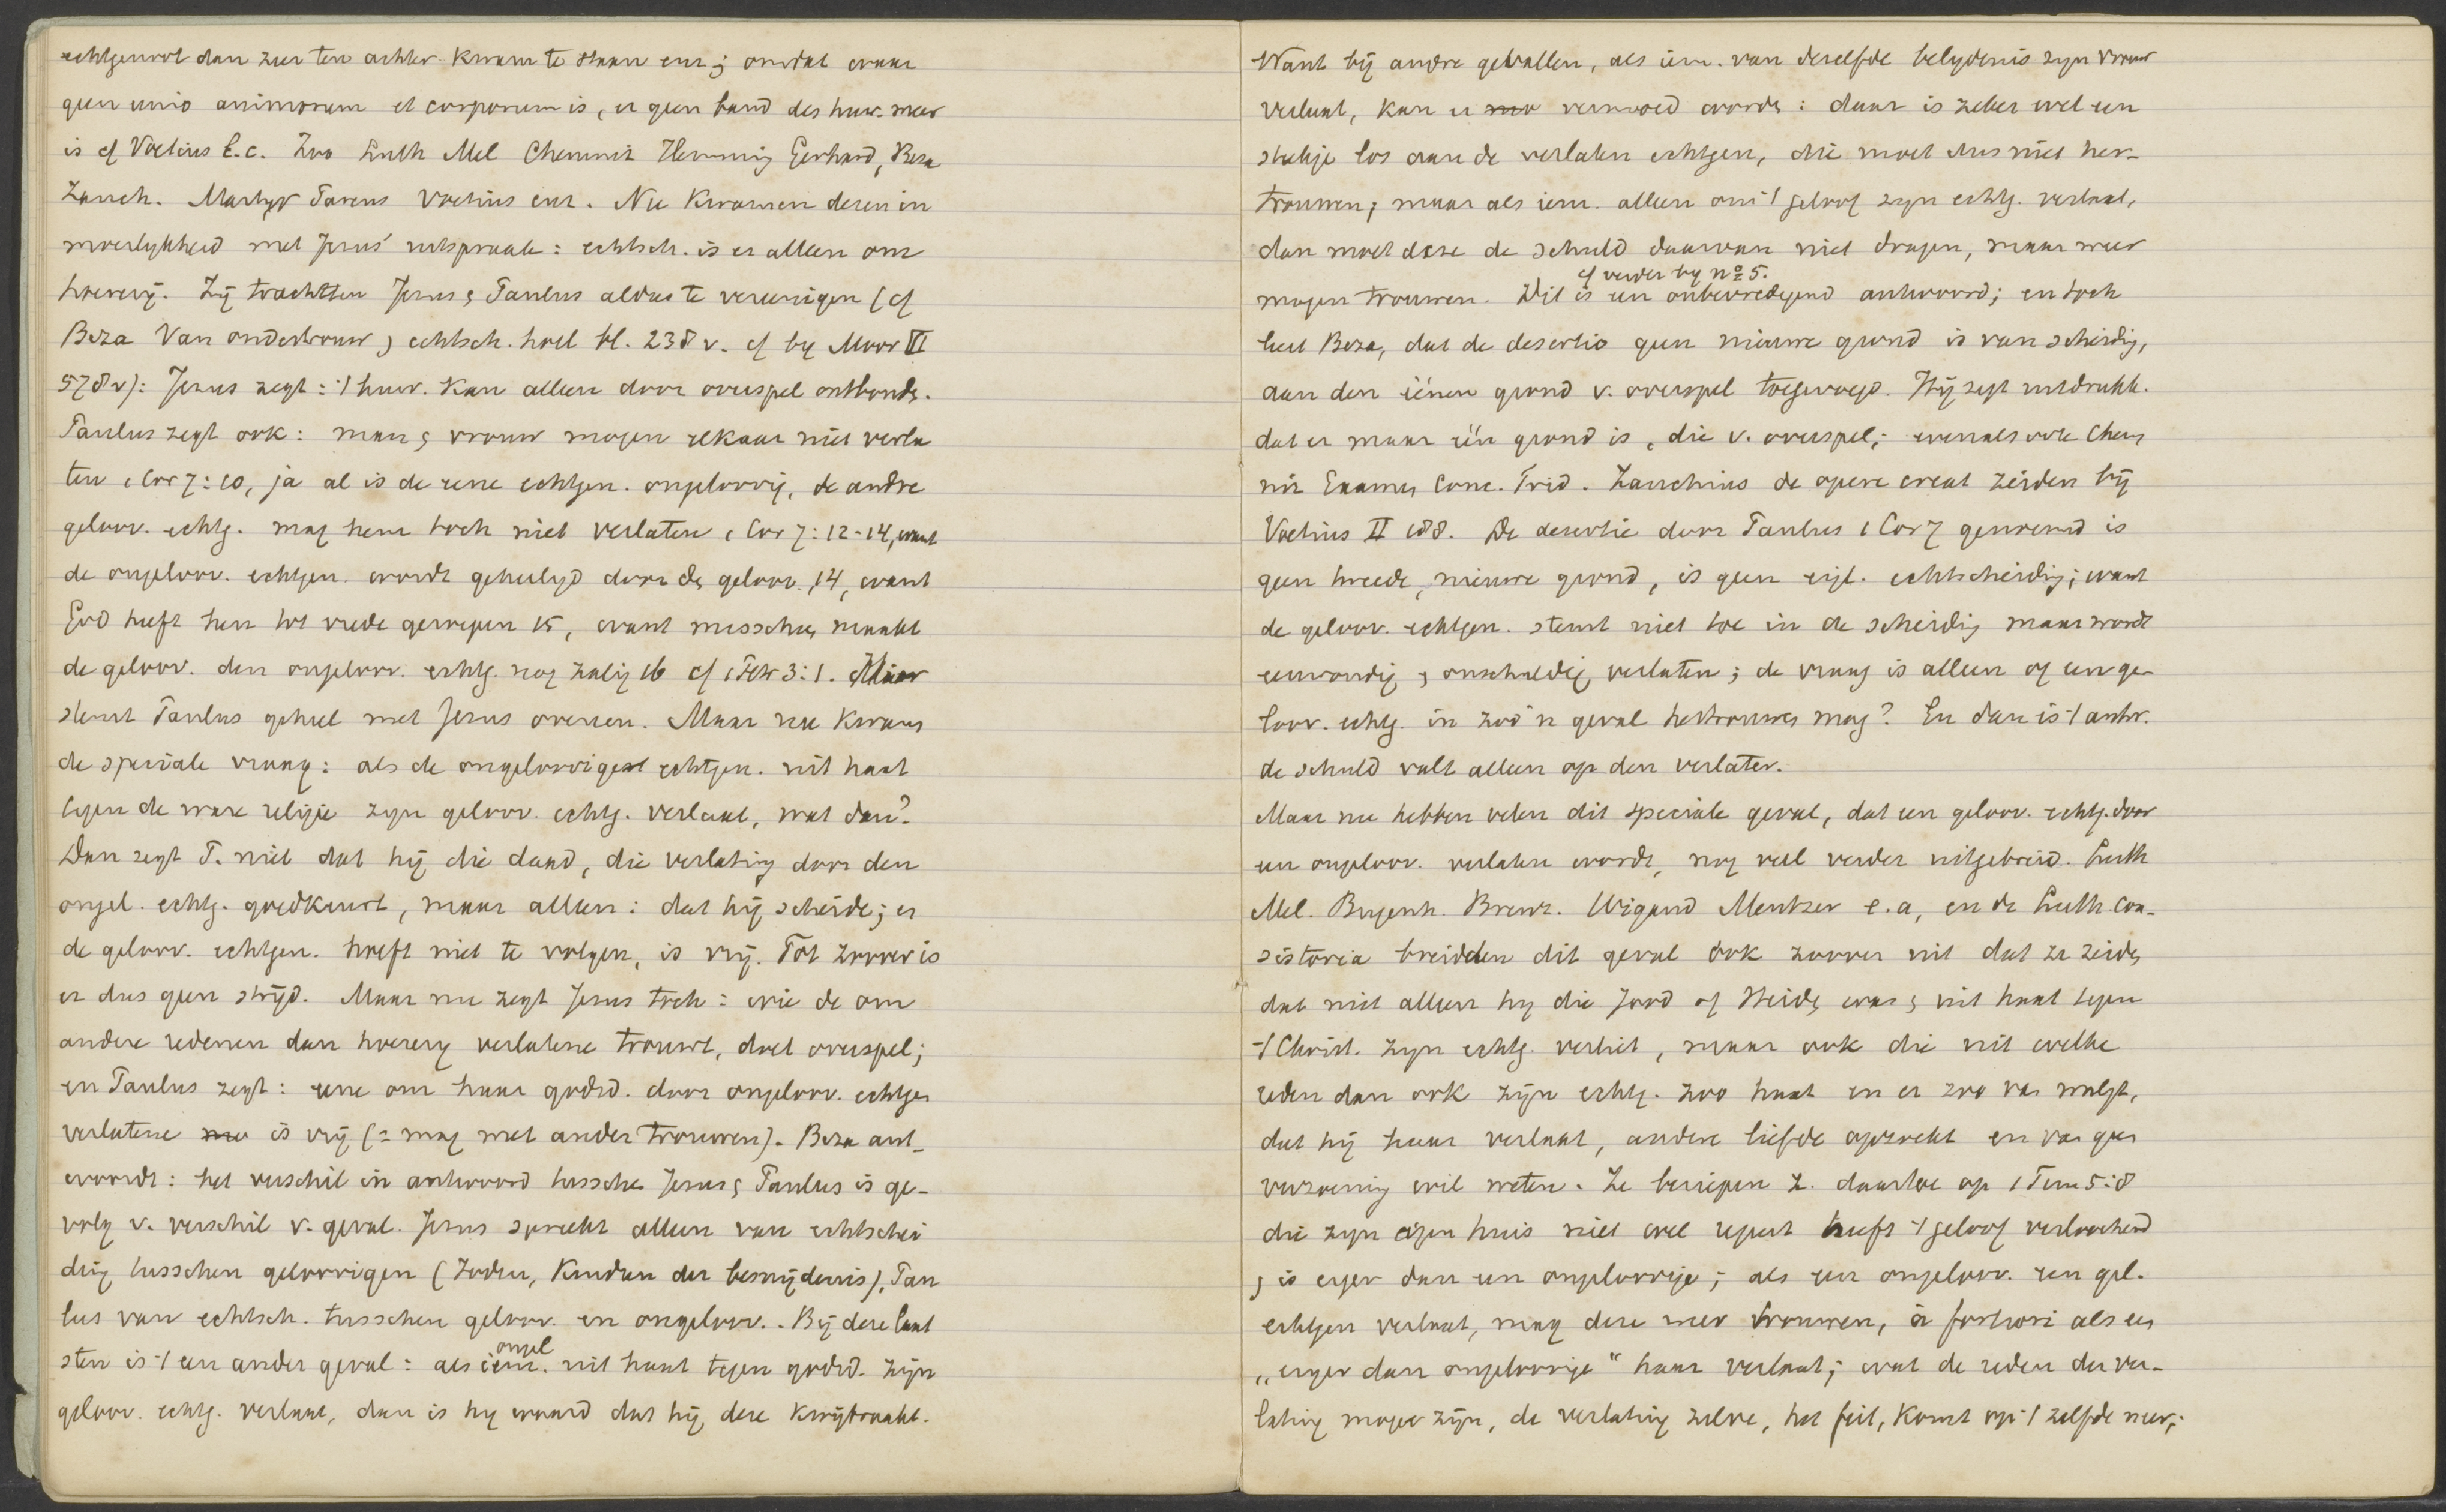 echtgenoot dan zeer ten achter kwam te staan enz; omdat waar
geen unio animorum et corporum is, er geen band des huw. meer
is cf Voetius l.c. Zoo Luth Mel Chemniz Hemming Gerhard, Beza
Zanch. Martyr Pareus Voetius enz. Nu kwamen dezen in
moeilykheid met Jezus' uitspraak: echtsch. is er alleen om
hoererij. Zij trachtten Jezus & Paulus aldus te vereenigen (cf
Beza Van ondertrouw & echtsch. holl bl. 238 v. cf by Moor VI
578 v): Jezus zegt: 't huw. kan alleen door overspel ontbonds.
Paulus zegt ook: man & vrouw mogen elkaar niet verla
ten 1 Cor 7:10, ja al is de eene echtgen. ongeloovig, de andre
geloov. echtg. mag hem toch niet verlaten 1 Cor 7:12-14, want
de ongeloov. echtgen. wordt geheiligd door de geloov. 14, want
God heeft hen tot vrede geroepen 15, want misschien maakt
de geloov. den ongeloov. echtg. nog zalig 16 cf 1 Petr 3:1. Hier
stemt Paulus geheel met Jezus overeen. Maar nu kwam
de speciale vraag: als de ongeloovige echtgen. uit haat
tegen de ware religie zyn geloov. echtg. verlaat, wat dan?
Dan zegt P. niet dat hij die daad, die verlating door den
ongel. echtg. goedkeurt, maar alleen: dat hij scheide; er
de geloov. echtgen. hoeft niet te volgen, is vrij. Tot zoover is
er dus geen strijd. Maar nu zegt Jezus toch: wie de om
andere redenen dan hoerery verlatene trouwt, doet overspel;
en Paulus zegt: eene om haar godsd. door ongeloov. echtgen
verlatene is vrij (= mag met ander trouwen). Beza ant_
woordt: het verschil in antwoord tusschen Jezus & Paulus is ge-
volg v. verschil v. geval. Jezus spreekt alleen van echtschei
ding tusschen geloovigen (Joden, kinderen der besnijdenis), Pau
lus van echtsch. tusschen geloov. en ongeloov.. Bij deze laat
sten is 't een ander geval: als ongel iem. uit haat tegen godsd. zijn
geloov. echtg. verlaat, dan is hy waard dat hij deze kwijtraakt.
Want bij andre gevallen, als iem. van dezelfde belydenis zyn vrouw
verlaat, kan er vermoed worde: daar is zeker wel een
steekje los aan de verlaten echtgen, die moet dus niet her-
trouwen; maar als iem. alleen om 't geloof zyn echtg. verlaat,
dan moet deze de schuld daarvan niet dragen, maar weer
cf verder by no 5.
mogen trouwen. Dit is een onbevredigend antwoord; en toch
leert Beza, dat de desertio geen nieuwe grond is van scheidig,
aan den éénen grond v. overspel toegevoegd. Hij zegt uitdrukk.
dat er maar één grond is, die v. overspel; evenals ook Chem
niz Examen Conc. Trid. Zanchius de opere creat zeiden bij
Voetius II 188. De desertie door Paulus 1 Cor 7 genoemd is
geen tweede, nieuwe grond, is geen eigl. echtscheidig; want
de geloov. echtgen. stemt niet toe in de scheidig maar wordt
eenvoudig & onschuldig verlaten; de vraag is alleen of een ge-
loov. echtg. in zoo'n geval hertrouwen mag? En dan is 't antw.
de schuld valt alleen op den verlater.
Maar nu hebben velen dit speciale geval, dat een geloov. echtg. door
een ongeloov. verlaten wordt, nog veel verder uitgebreid. Luth
Mel. Bugenh. Brenz. Wigand Mentzer e.a, en de Luth. con-
sistoria breidden dit geval ook zoover uit dat ze zeiden
dat niet alleen hy die Jood of Heiden was & uit haat tegen
't Christ. zyn echtg. verliet, maar ook die uit welke
reden dan ook zijn echtg. zoo haat en er zoo van walgt,
dat hij haar verlaat, andere liefde opzoekt en van geen
verzoening wil weten. Ze beriepen z. daartoe op 1 Tim 5:8
die zyn eigen huis niet wel regeert heeft 't geloof verloochend
& is erger dan een ongeloovige; als een ongeloov. een gel.
echtgen verlaat, mag deze weer trouwen, à fortiori als een
„erger dan ongeloovige" haar verlaat; wat de reden der ver-
lating moge zijn, de verlating zelve, het feit, komt op 't zelfde neer;